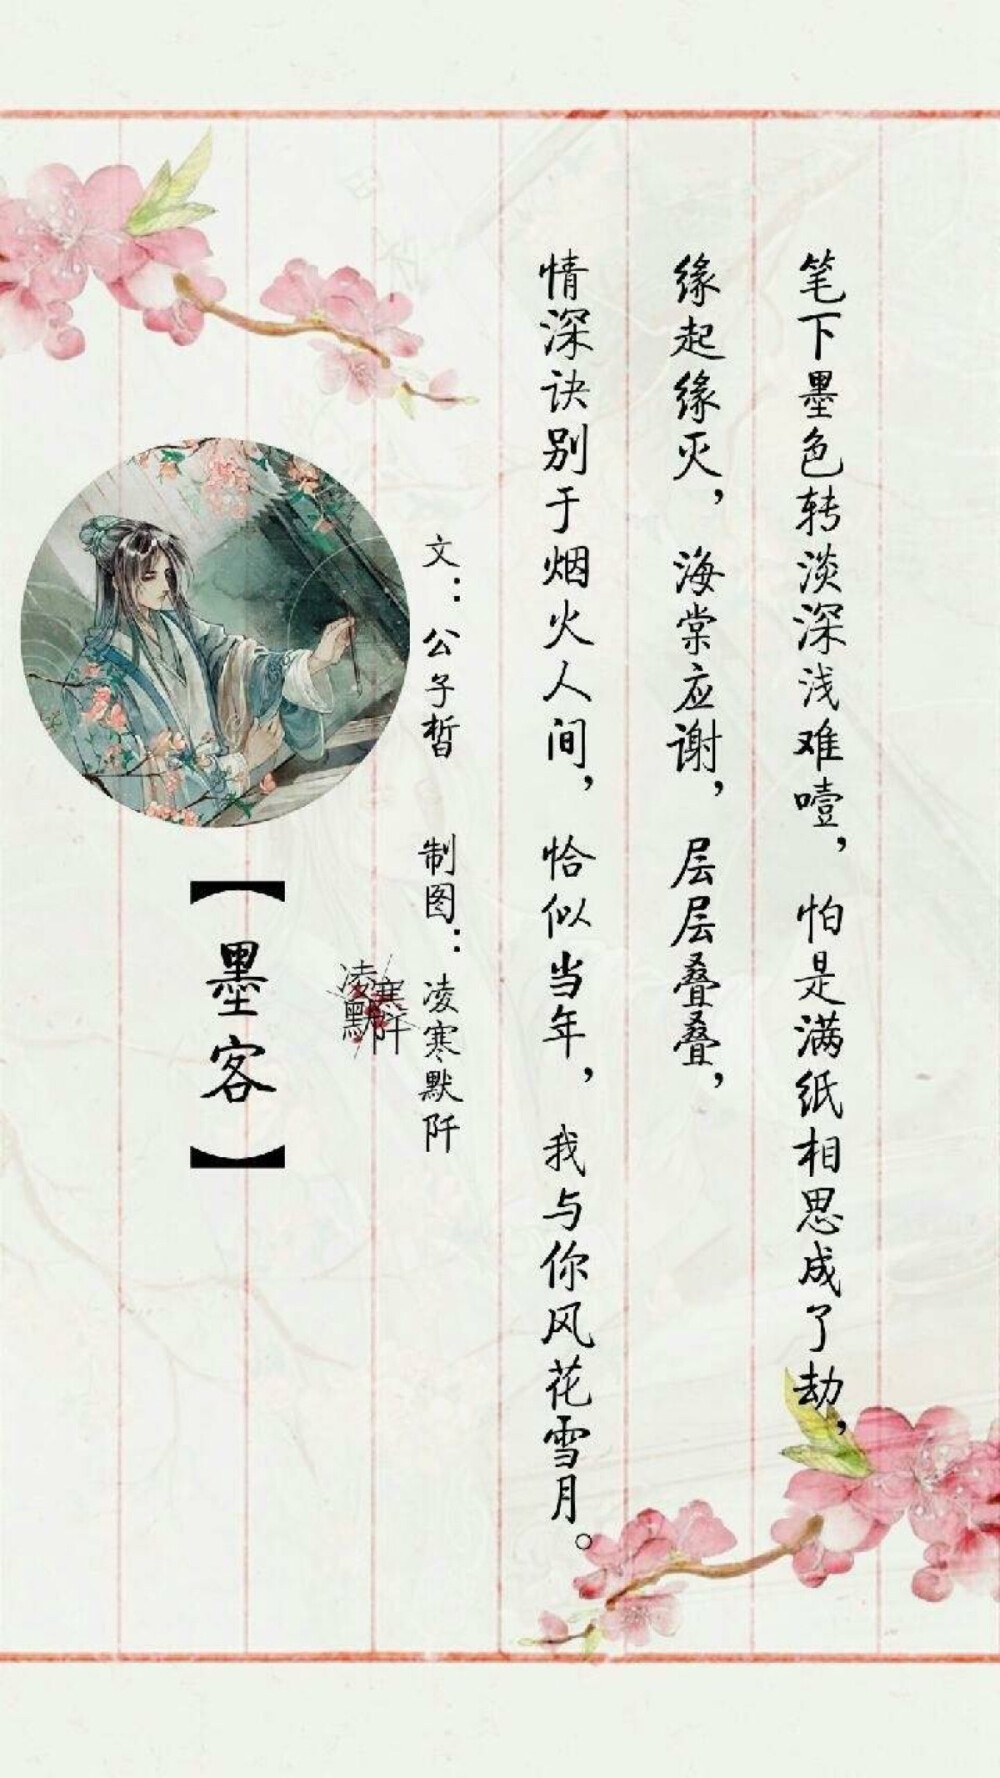 笔下墨色转淡深浅难噎，怕是满纸相思成了劫，
缘起缘灭，海棠应谢，层层叠叠，
情深诀别于烟火人间，恰似当年，我与你风花雪月。
文：公子皙 制图：凌寒默阡
凌寒默阡
【墨客】